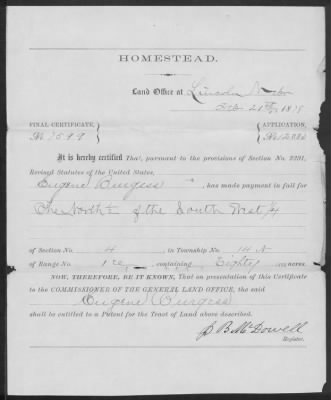 HOMESTEAD.
Land Office at Lincoln Nebr
Feb 21st 187
FINAL CERTIFICATE,
APPLICATION,
No. 2599
No.
It is hereby certified That, pursuant to the provisions of Section No. 2291,
Revised Statutes of the United States,
Eugene Burgess, has made payment in full for
The North ½ of the South West ¼
of Section No. 4, in Township No. 14 N
of Range No. 1 , containing Eighty acres.
NOW, THEREFORE, BE IT KNOWN, That on presentation of this Certificate
to the COMMISSIONER OF THE GENERAL LAND OFFICE, the said
Eugene Burgess
shall be entitled to a Patent for the Tract of Land above described.
J B McDowell
Register.